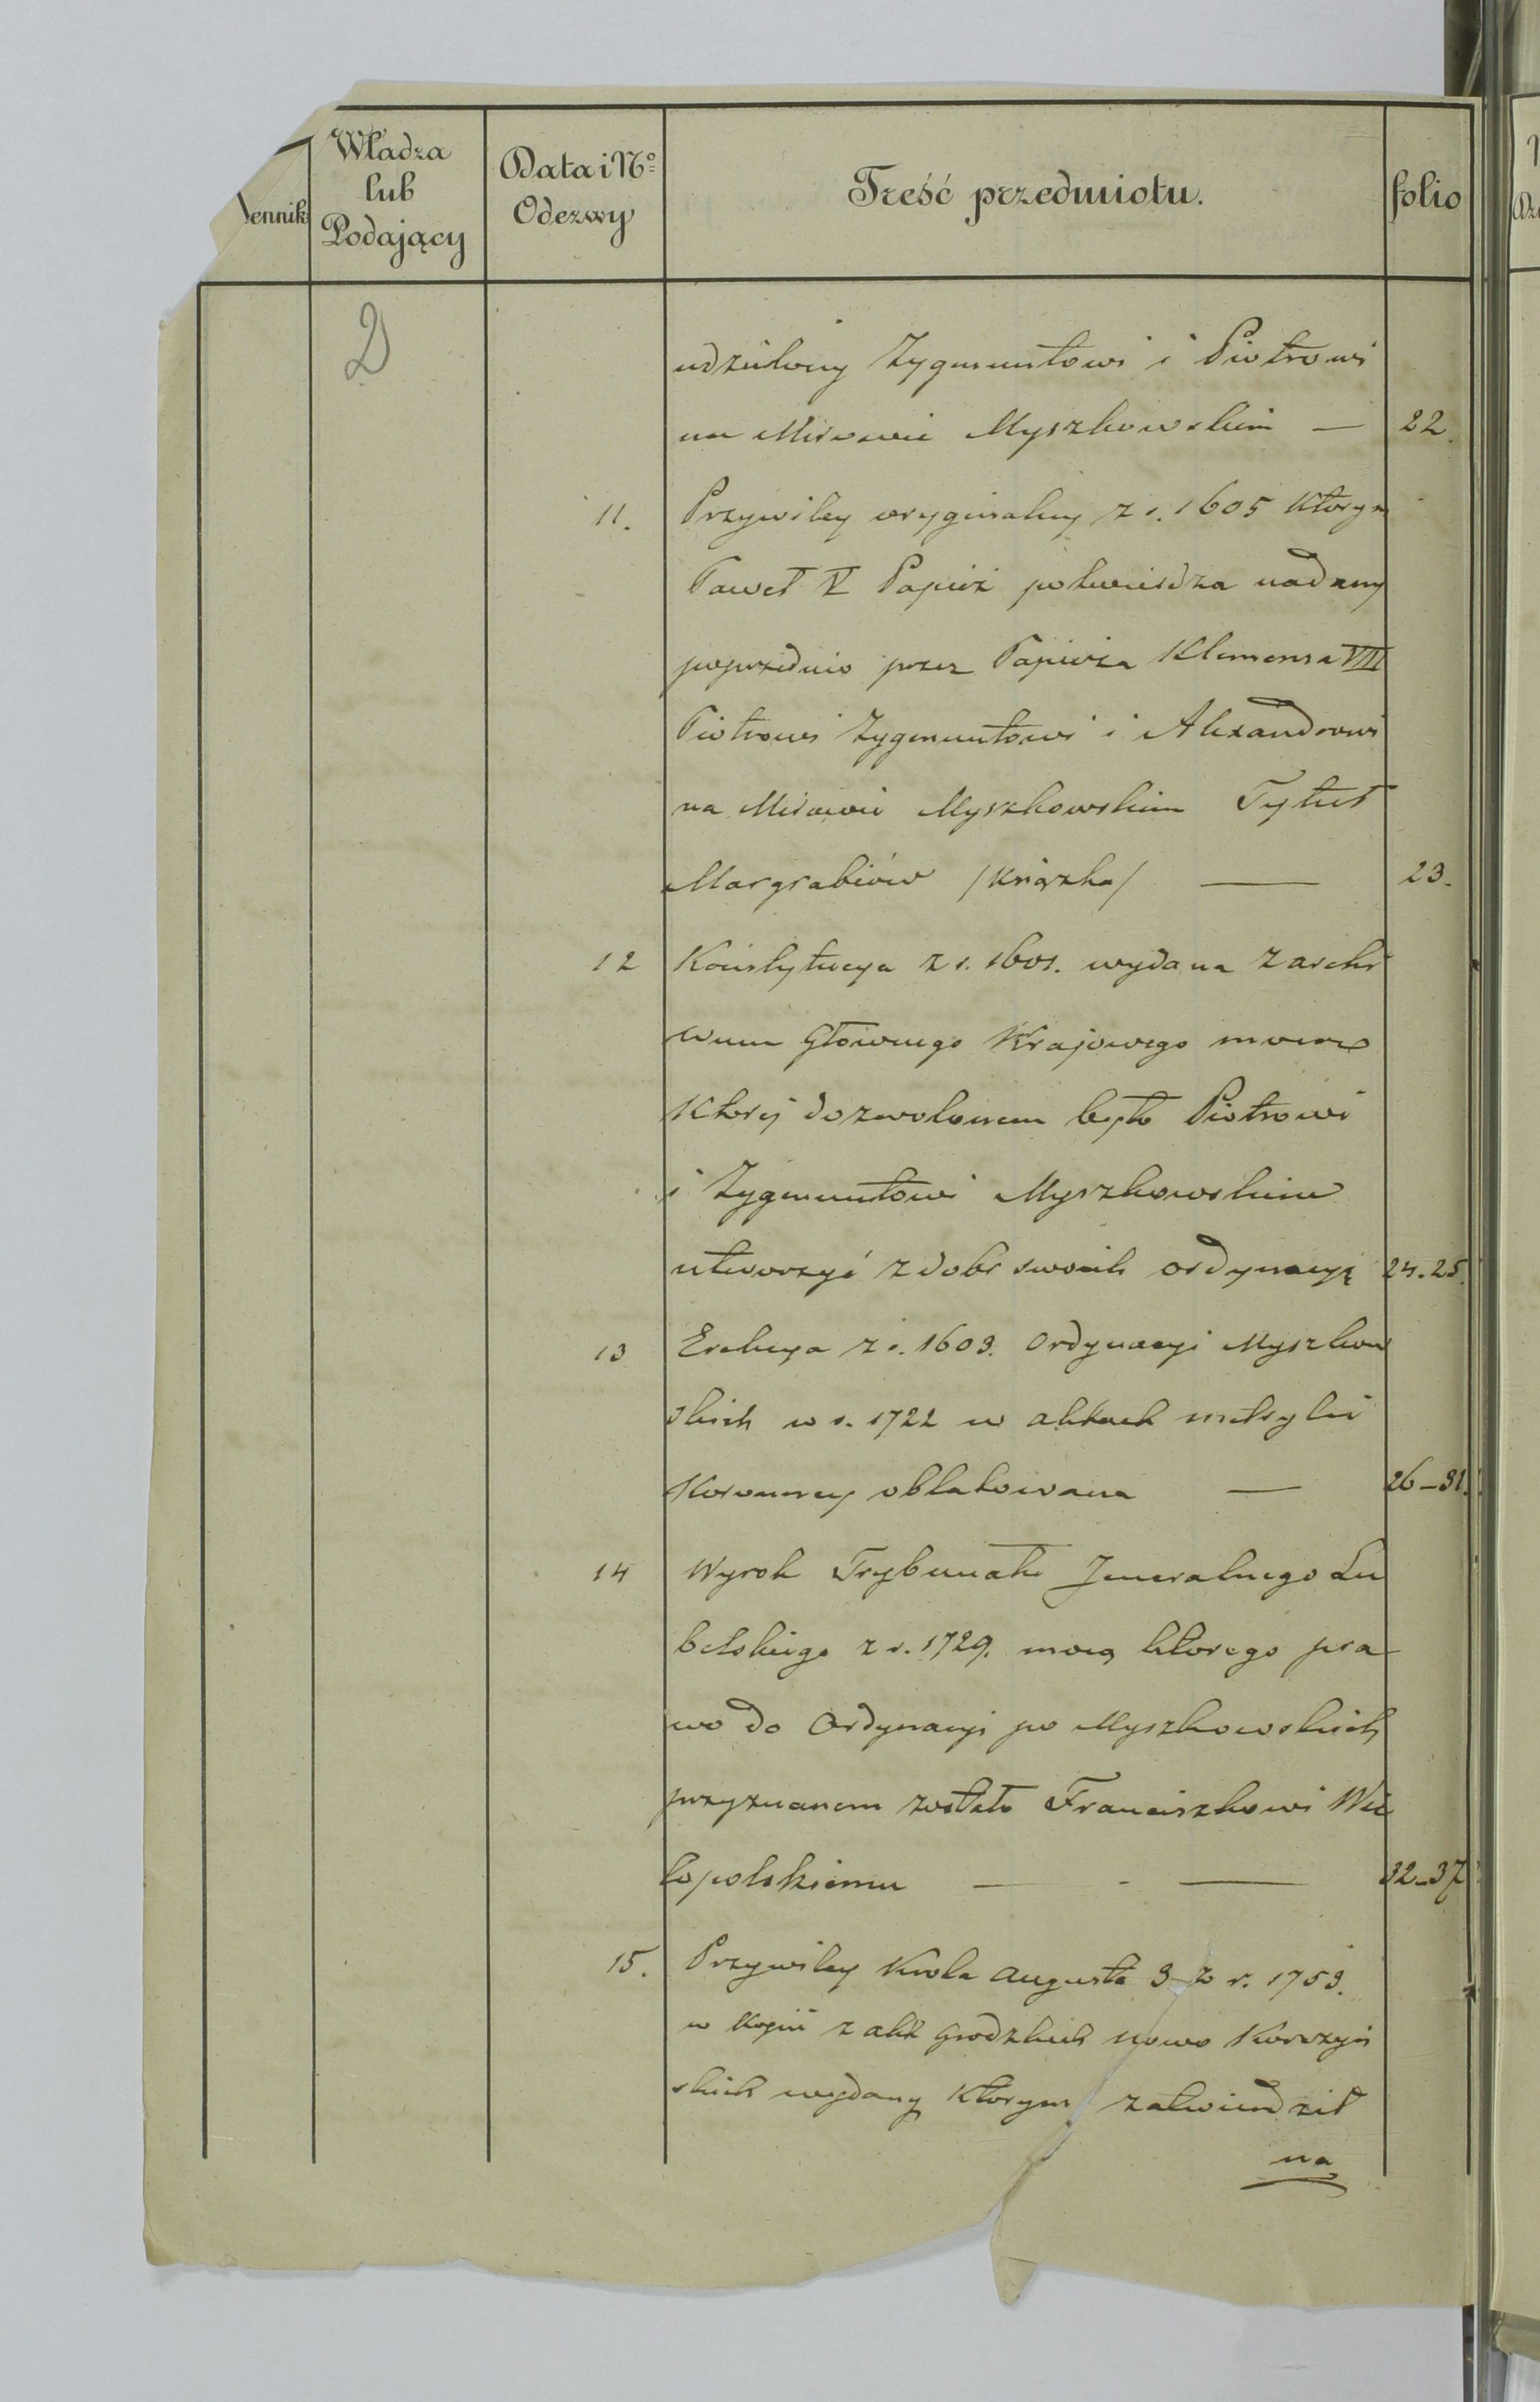 Władza
lub
Podający
Data i No
Odezwy
Treść przedmiotu.
folio
ennik
D
udzielony Zygmuntowi i Piotrowi
na Mirowie Myszkowskim — 22.
11. Przywiley oryginalny z r. 1605 którym
Paweł V Papież potwierdza nadany
poprzednio przez Papieża Klemensa VIII
Piotrowi Zygmuntowi i Alexandrowi
na Mirowie Myszkowskim Tytuł
Margrabiów /książka/ — 23.
12 Konstytucya z r. 1601. wydana z archi
wum Głownego Krajowego mocą
którey dozwolonem było Piotrowi
i Zygmuntowi Myszkowskim
utworzyć z dobr swoich ordynacyę 24.25.
13 Erekcya z r. 1603. Ordynacyi Myszkow
skich w r. 1722 w aktach metryki
Koronney oblatowana — 26-31.
14 Wyrok Trybunału Jeneralnego Lu
belskiego z r. 1729. mocą którego pra
wo do Ordynacyi po Myszkowskich
przyznanem zostało Franciszkowi Wie
lopolskiemu — - — 32-37
15. Przywiley Krola Augusta 3 z r. 1753.
w kopii z akt Grodzkich nowo Korczyń
skich wydany którym zatwierdził
na